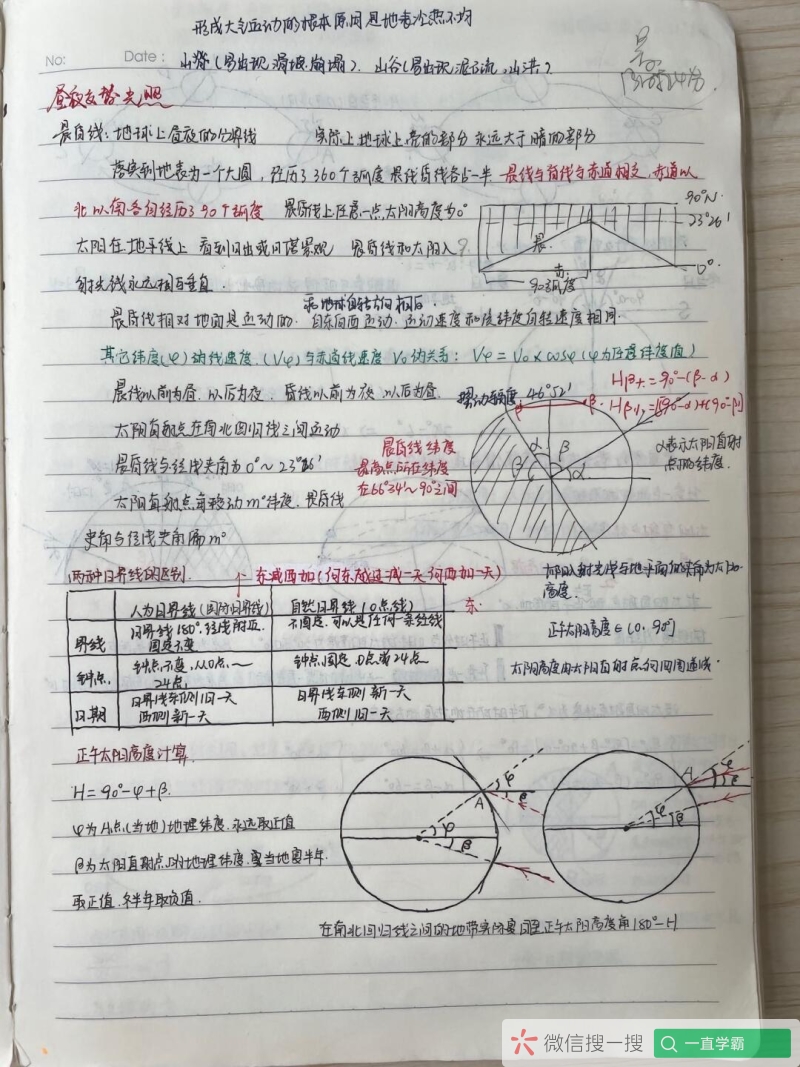 形成大气运动的根本原因是地表冷热不均
No:
Date:
山脊(易出现滑坡、崩塌)、山谷(易出现泥石流、山洪)
昼夜交替与光照
晨昏线:地球上昼夜的分界线 实际上地球上亮的部分永远大于暗的部分
落实到地表为一个大圆,经历了360个弧度 晨线昏线各占一半 晨线与昏线与赤道相交,赤道以
北以南各自经历了90个弧度 晨昏线上任意一点太阳高度为0°
90°N
23°26′
0°
晨
赤
90弧度
太阳在地平线上 看到日出或日落景观 晨昏线和太阳入
射光线永远相互垂直
和地球自转方向相反
晨昏线相对地面是运动的 自东向西运动 运动速度和该纬度自转速度相同
其它纬度(φ)的线速度(Vφ)与赤道线速度V₀的关系:Vφ=V₀×cosφ(φ为任意纬度值)
晨线以前为昼 以后为夜 昏线以前为夜 以后为昼
摆动幅度46°52′
太阳直射点在南北回归线之间运动
晨昏线纬度
最高点所在纬度
在66°34′~90°之间
α表示太阳直射
点的纬度
晨昏线与经线夹角为0°~23°26′
太阳直射点每移动m°纬度,晨昏线
夹角与经线夹角偏m°
两种日界线的区别
东减西加(向东越过减一天 向西加一天)
东
人为日界线(国际日界线) 自然日界线(0点线)
界线 日界线180°经线附近 固定不变 不固定,可以是任何一条经线
钟点 钟点不定,从0点~24点 钟点固定 0点或24点
日期 日界线东侧旧一天 西侧新一天 日界线东侧新一天 西侧旧一天
太阳入射光线与地平面的夹角为太阳
高度
正午太阳高度∈(0,90°]
太阳高度由太阳直射点向四周递减
正午太阳高度计算
H=90°-φ+β
φ为A点(当地)地理纬度,永远取正值
β为太阳直射点的地理纬度,当地夏半年
取正值,冬半年取负值
A
φ
β
φ
β
A
φ
β
φ
β
在南北回归线之间的地带实际夏至正午太阳高度角180°-H
微信搜一搜
一直学霸